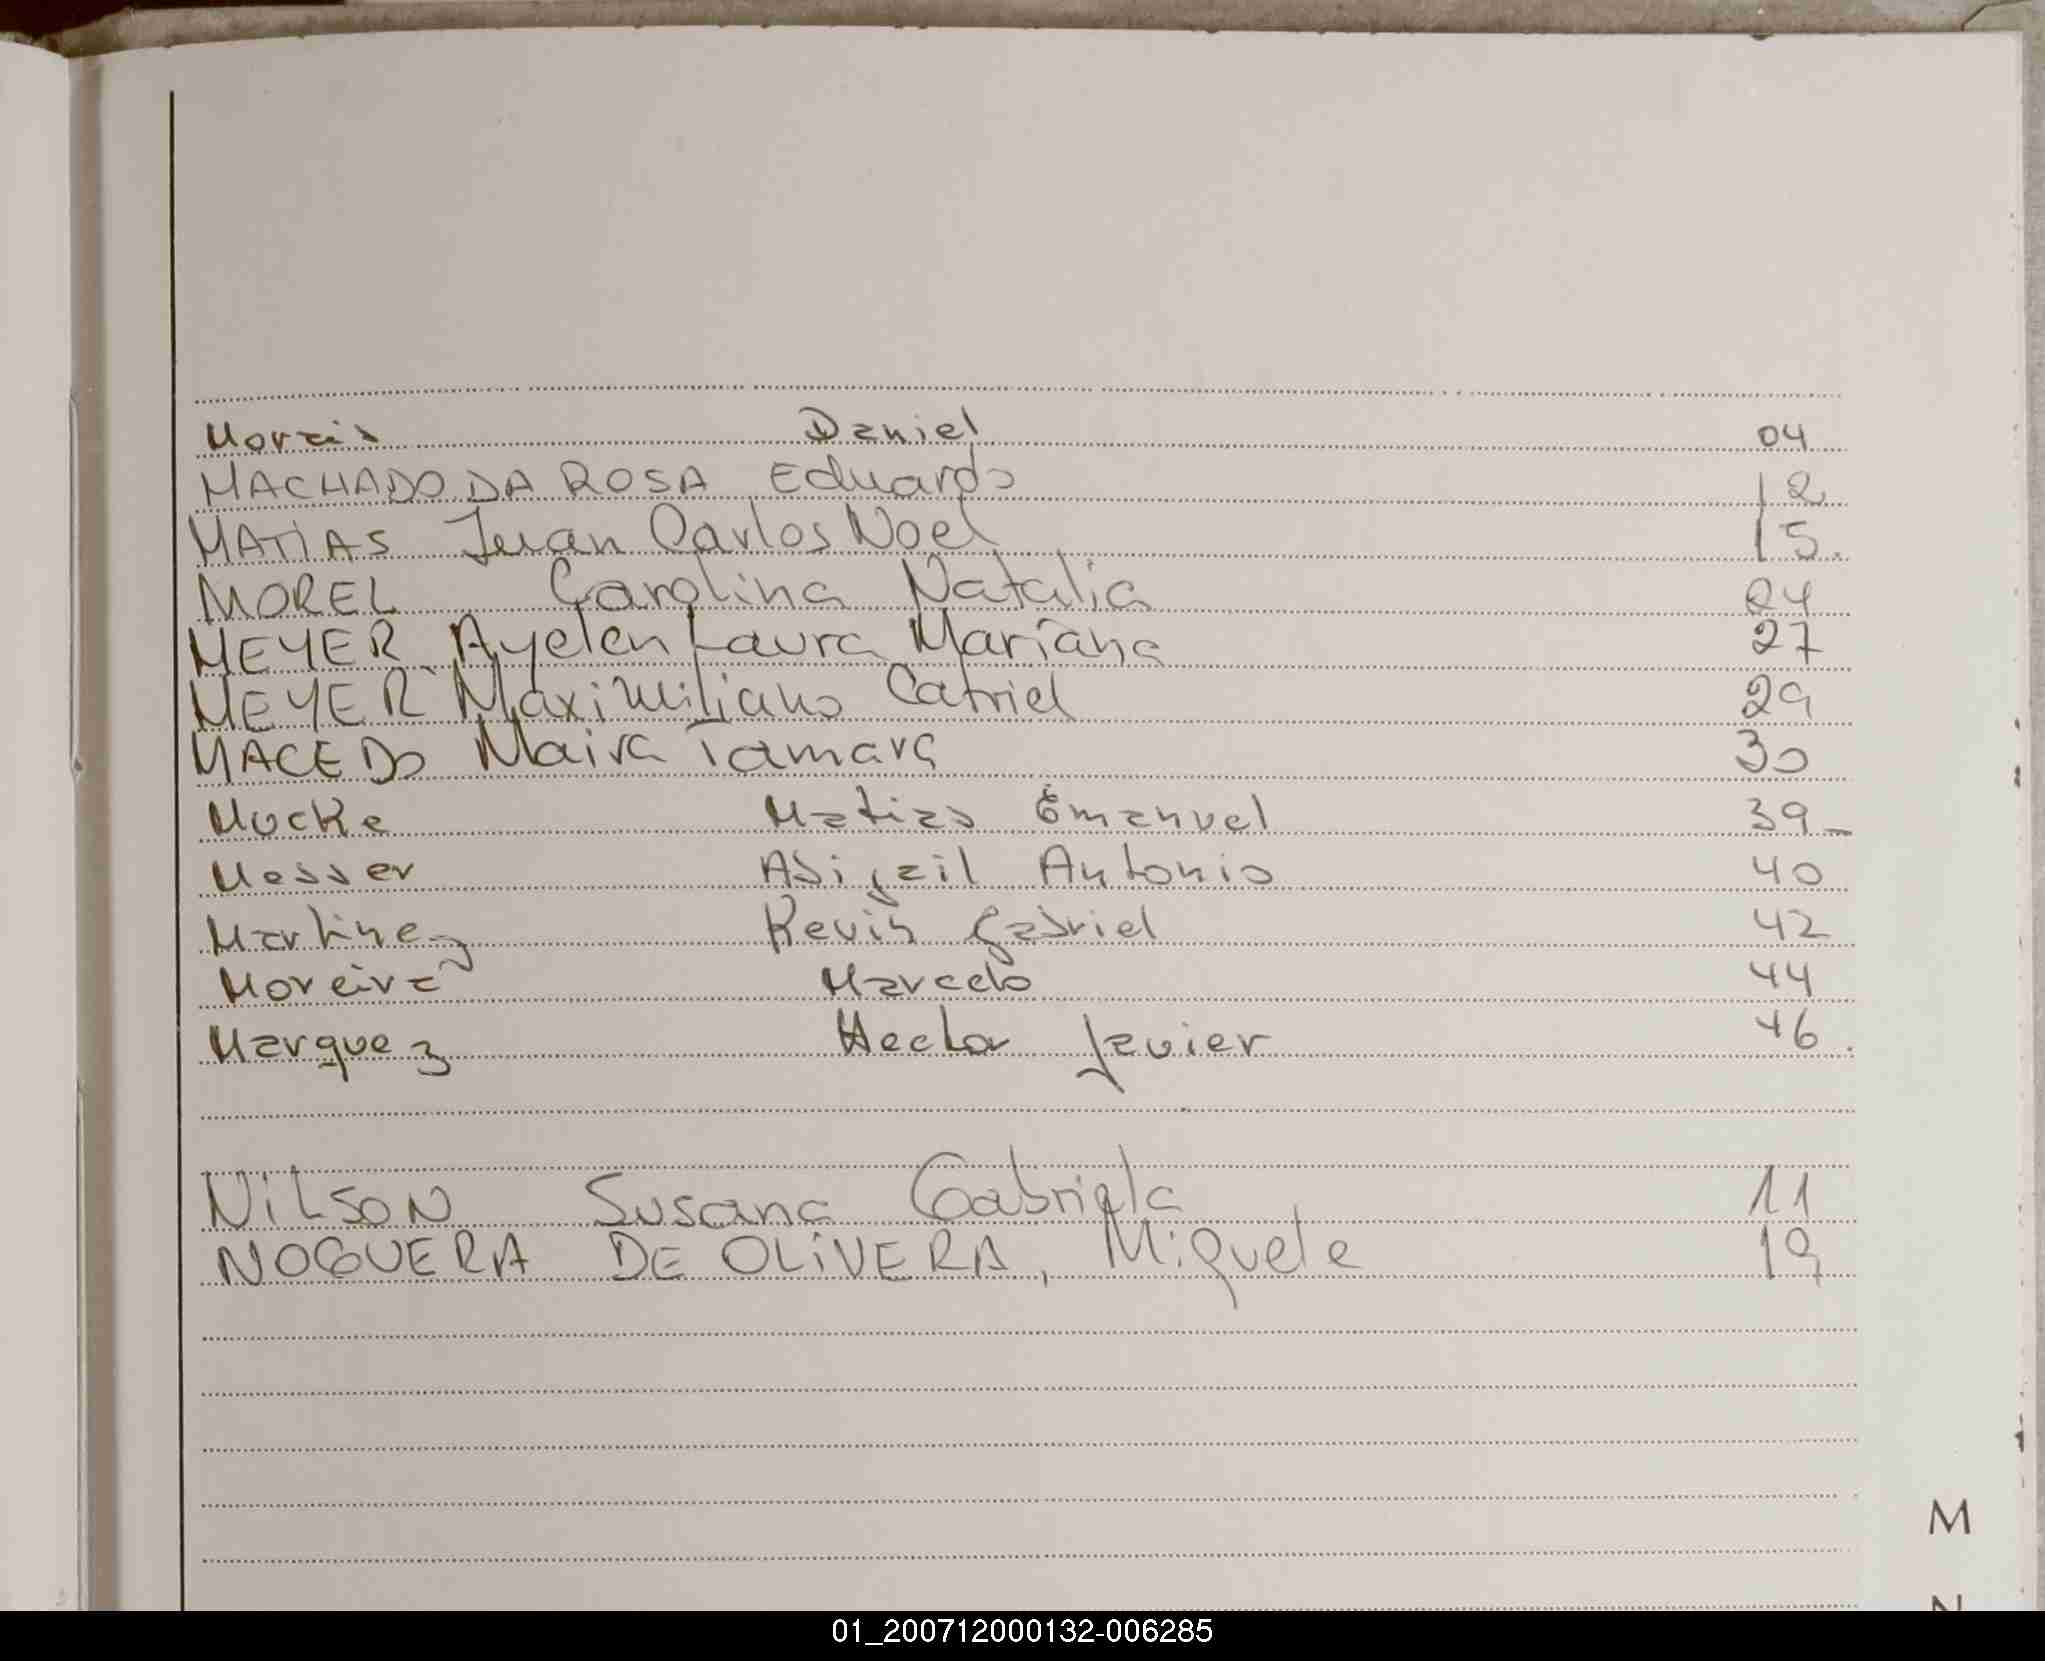 Morais Daniel 04
MACHADO DA ROSA Eduardo 12
MATIAS Juan Carlos Noel 15.
MOREL Carolina Natalia 24
MEYER Ayelen Laura Mariana 27
MEYER Maximiliano Catriel 29
MACEDO Maira Tamara 30
Mucke Matias Emanuel 39_
Messer Abigail Antonio 40
Martinez Kevin Gabriel 42
Moreira Marcelo 44
Marquez Hector Javier 46.
NiLSON Susana Gabriela 11
NOGUERA DE OLiVERA, Miguele 19
M
N
01_200712000132-006285